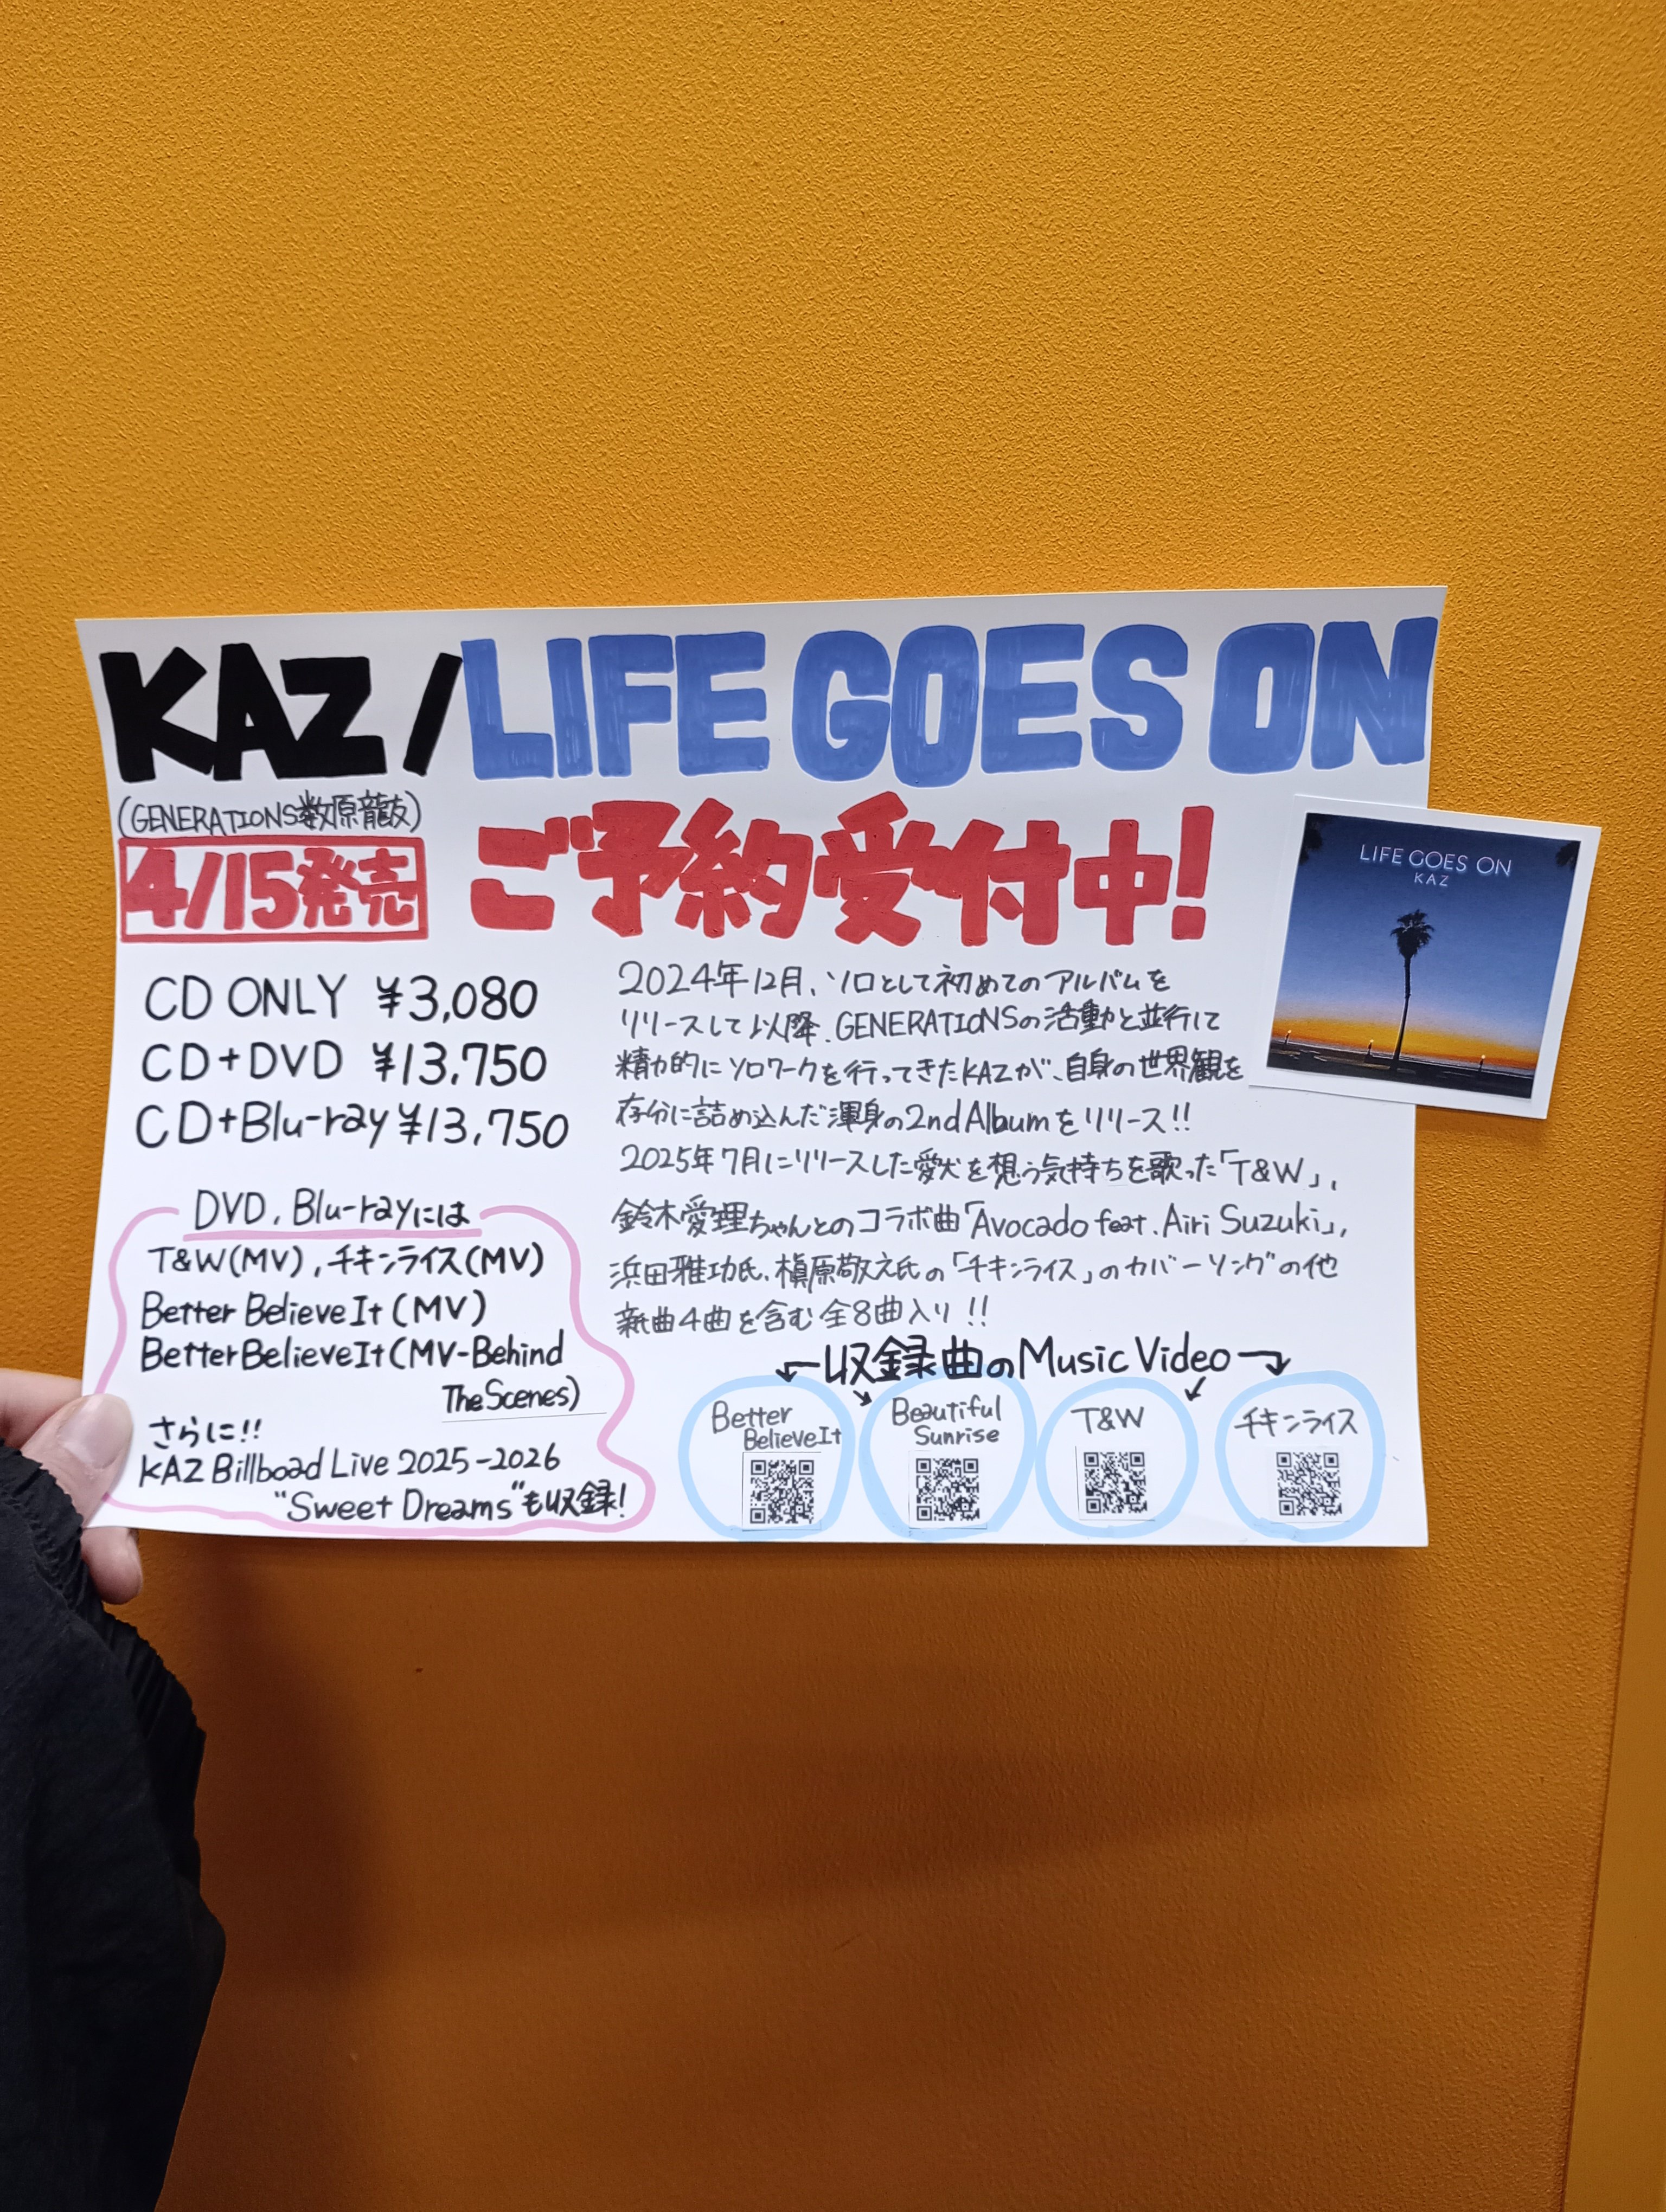 KAZ/LIFE GOES ON
(GENERATIONS数原龍友)
4/15発売
ご予約受付中!
LIFE GOES ON
KAZ
CD ONLY ¥3,080
CD+DVD ¥13,750
CD+Blu-ray ¥13,750
DVD, Blu-rayには
T&W(MV),チキンライス(MV)
Better Believe It (MV)
Better Believe It (MV-Behind
The Scenes)
さらに!!
KAZ Billboad Live 2025-2026
"Sweet Dreams"も収録!
2024年12月、ソロとして初めてのアルバムを
リリースして以降、GENERATIONSの活動と並行して
精力的にソロワークを行ってきたKAZが、自身の世界観を
存分に詰め込んだ渾身の2nd Albumをリリース!!
2025年7月にリリースした愛犬を想う気持ちを歌った「T&W」、
鈴木愛理ちゃんとのコラボ曲「Avocado feat. Airi Suzuki」、
浜田雅功氏、槇原敬之氏の「チキンライス」のカバーソングの他
新曲4曲を含む全8曲入り!!
収録曲のMusic Video
Better
Believe It
Beautiful
Sunrise
T&W
チキンライス